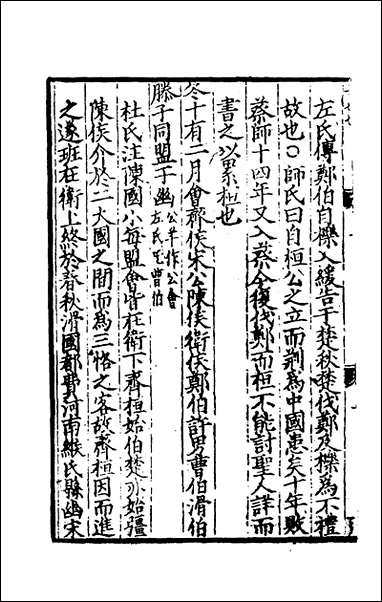 左氏傳鄭伯自櫟入緩告于楚秋楚伐鄭及櫟為不禮
故也○師氏曰自桓公之立而荆為中國患矣十年敗
蔡師十四年又入蔡今復伐鄭而桓不能討聖人詳而
書之以累桓也
冬十有二月會齊侯宋公陳侯衛侯鄭伯許男曹伯滑伯
滕子同盟于幽公羊作公會
左氏旡曹伯
杜氏注陳國小每盟會皆在衛下齊桓始伯楚亦始彊
陳侯介於二大國之間而為三恪之客故齊桓因而進
之遂班在衛上終於春秋滑國都費河南緱氏縣幽宋